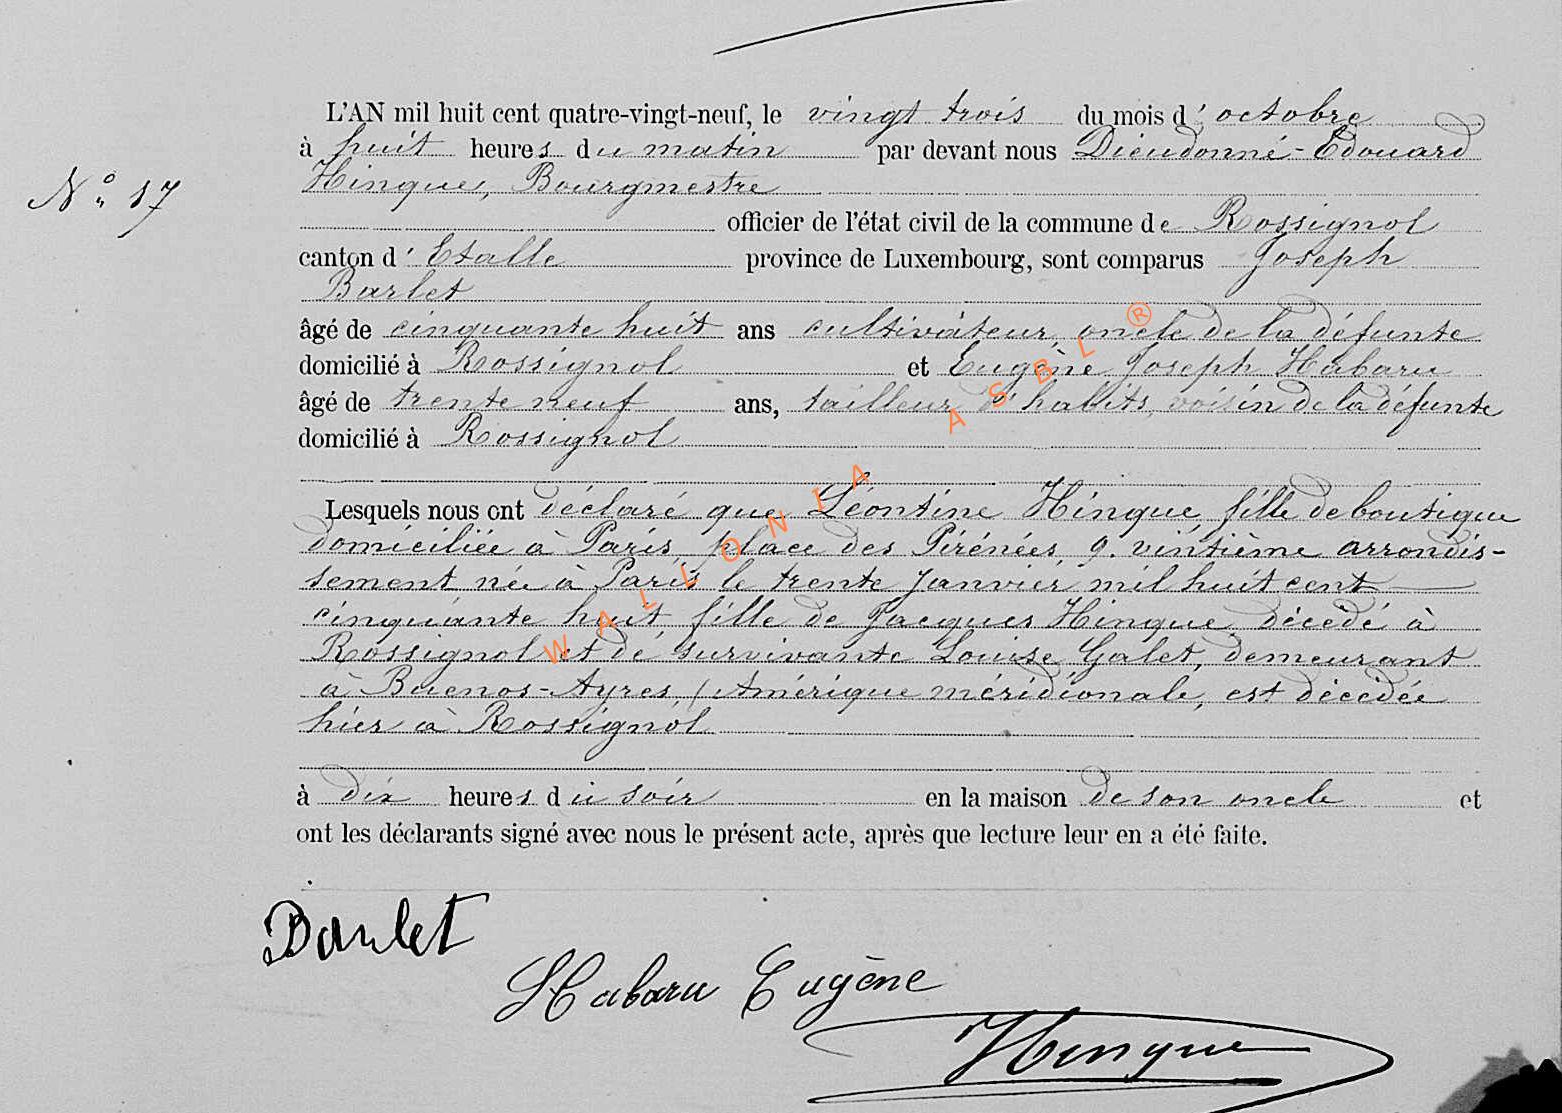 L'AN mil huit cent quatre-vingt-neuf, le vingt trois du mois d' octobre
à huit heures du matin par devant nous Dieudonné-Edouard
Hinque, Bourgmestre
N° 17
officier de l'état civil de la commune de Rossignol
canton d' Etalle province de Luxembourg, sont comparus Joseph
Barlet
âgé de cinquante huit ans cultivateur, oncle de la défunte
domicilié à Rossignol et Eugène Joseph Habaru
âgé de trente neuf ans, tailleur d'habits, voisin de la défunte
domicilié à Rossignol
Lesquels nous ont déclaré que Léontine Hinque, fille de boutique
domiciliée à Paris, place des Pirénées, 9. vintième arrondis-
sement née à Paris le trente Janvier mil huit cent
cinquante huit fille de Jacques Hinque, décédé à
Rossignol et de survivante Louise Galet, demeurant
à Buenos-Ayres, (Amérique méridionale, est décédée
hier à Rossignol
à dix heures du soir en la maison de son oncle et
ont les déclarants signé avec nous le présent acte, après que lecture leur en a été faite.
Barlet
Habaru Eugène
Hinque
WALLONIA ASBL ®